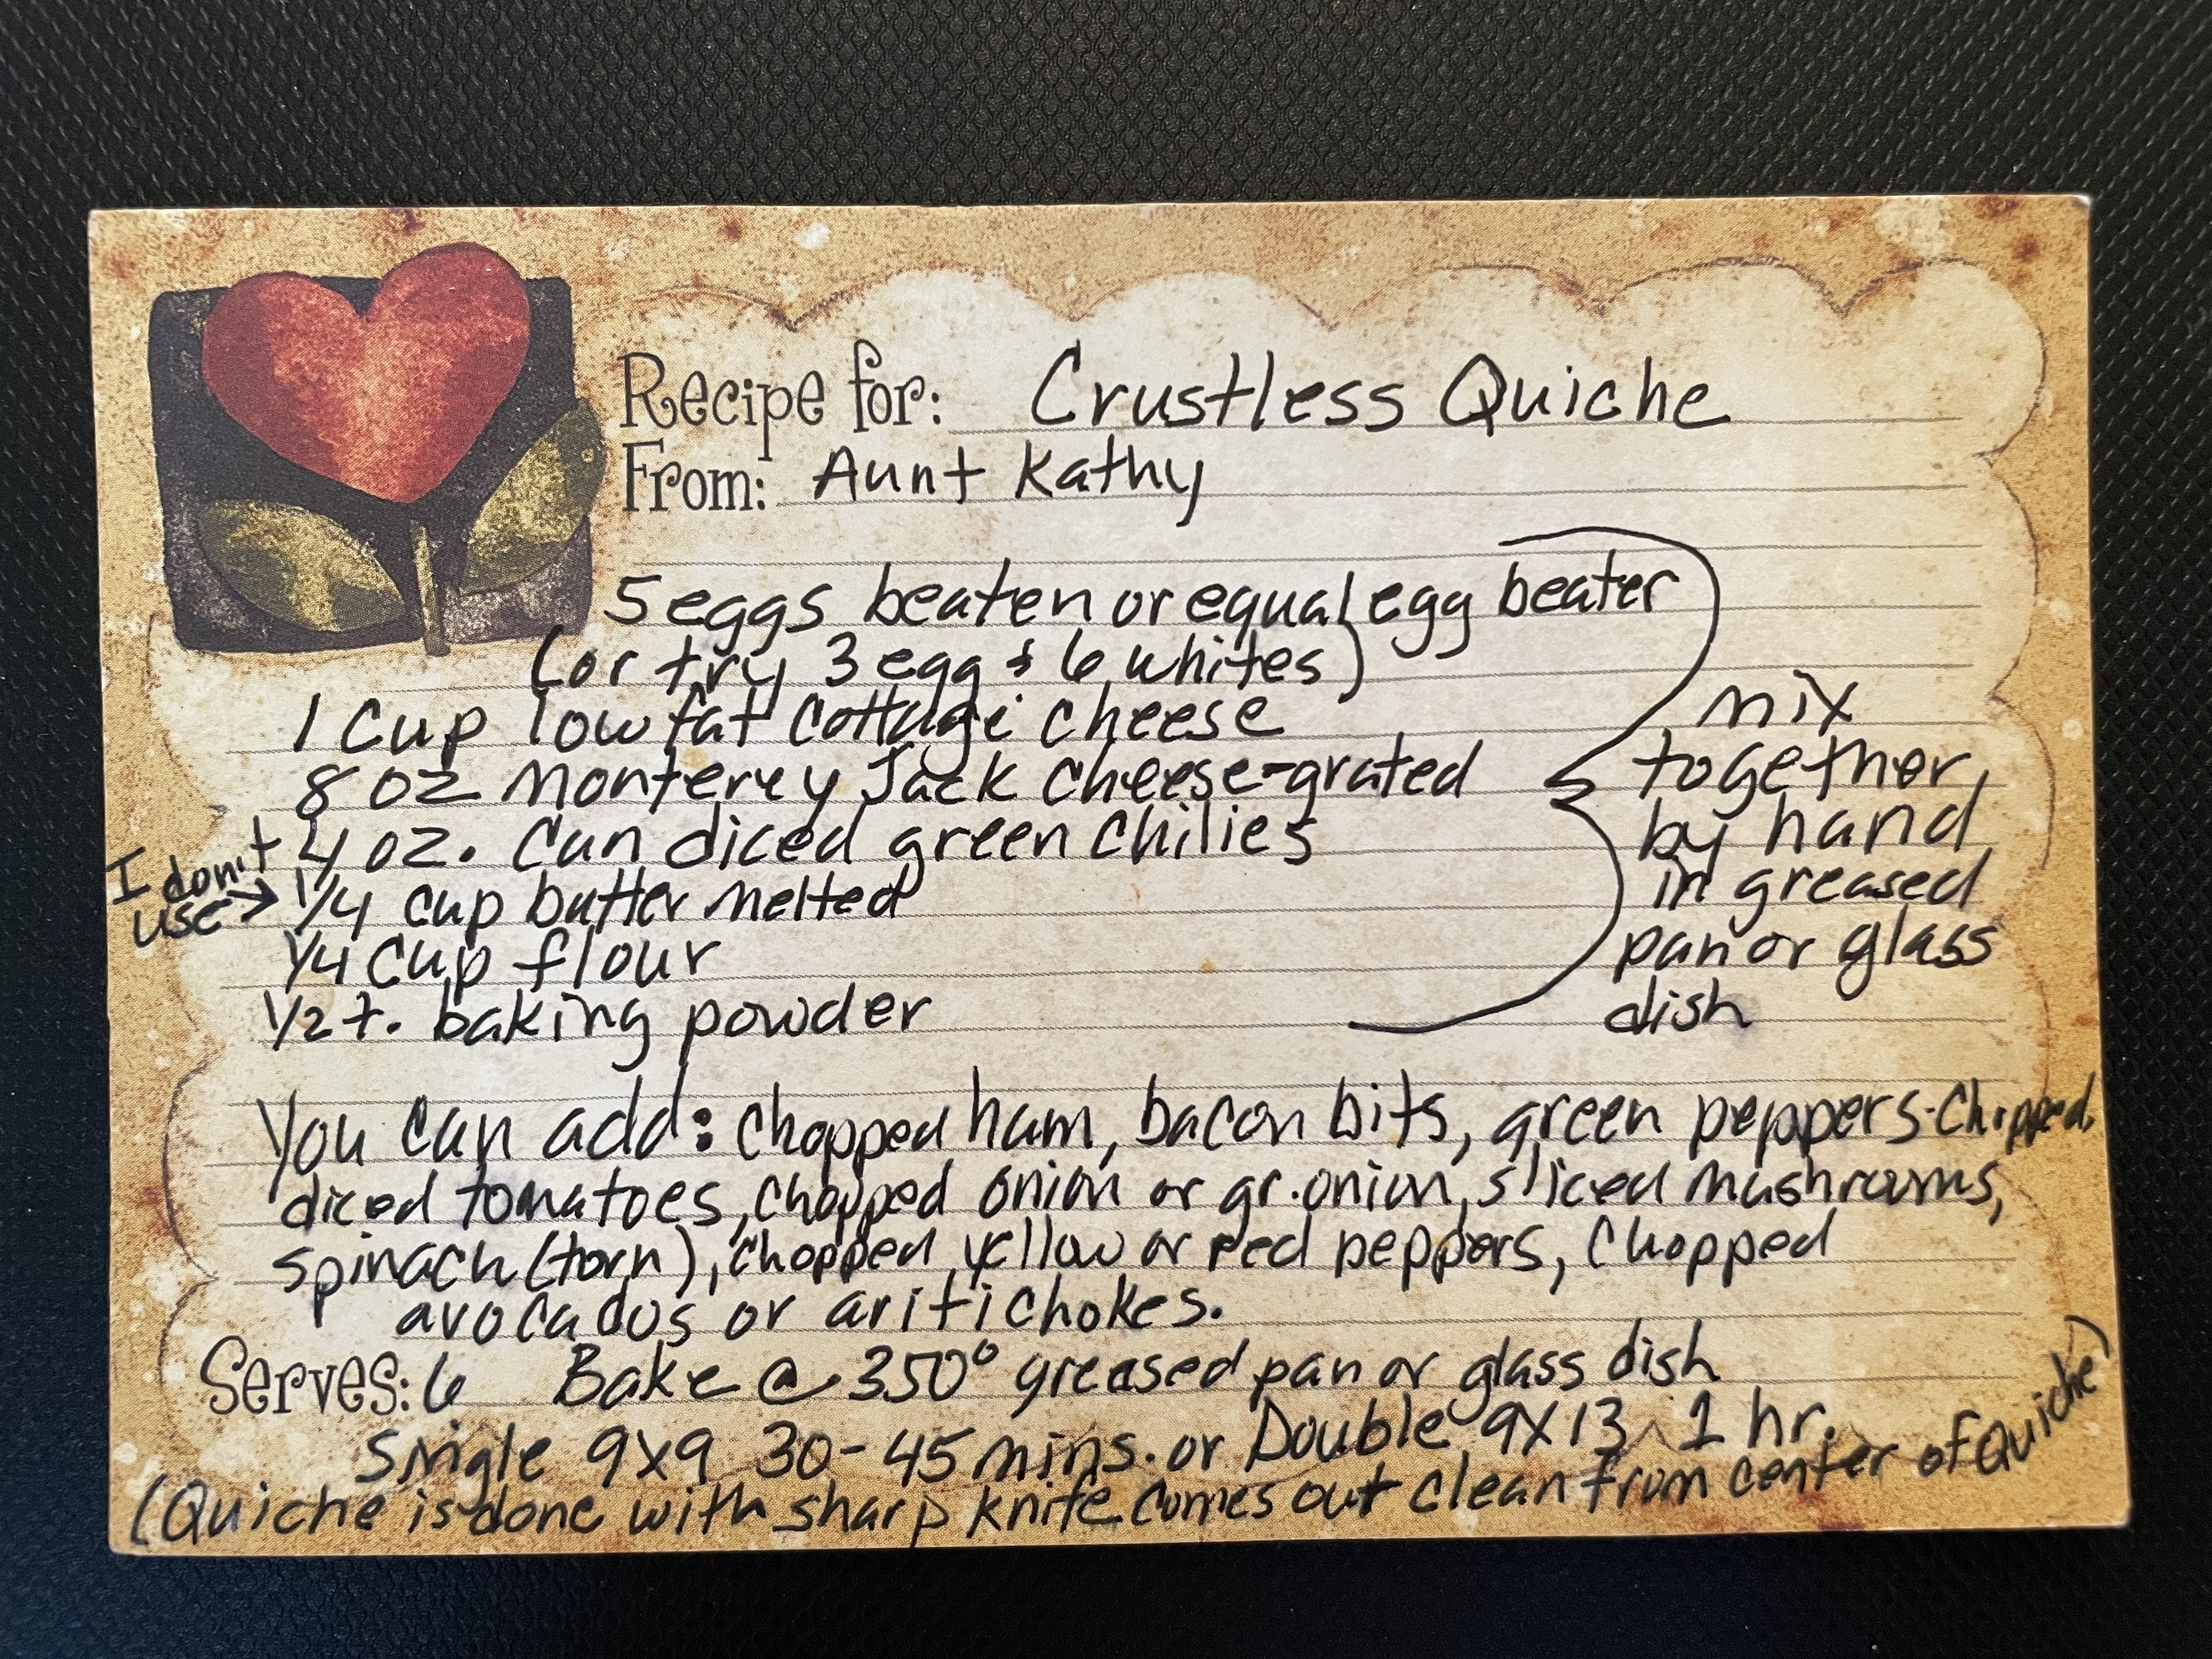 Recipe for: Crustless Quiche
From: Aunt Kathy
5 eggs beaten or equal egg beater
(or try 3 egg & 6 whites)
1 cup lowfat cottage cheese
8 oz Monterey Jack cheese-grated
4 oz. can diced green chilies
I don't
use →
1/4 cup butter melted
1/4 cup flour
1/2 t. baking powder
mix
together
by hand
in greased
pan or glass
dish
You can add: chopped ham, bacon bits, green peppers-chopped,
diced tomatoes, chopped onion or gr. onion, sliced mushrooms,
spinach (torn), chopped yellow or red peppers, chopped
avocados or aritichokes.
Serves: 6 Bake @ 350° greased pan or glass dish
Single 9x9 30-45 mins. or Double 9x13 1 hr.
(Quiche is done with sharp knife comes out clean from center of Quiche)